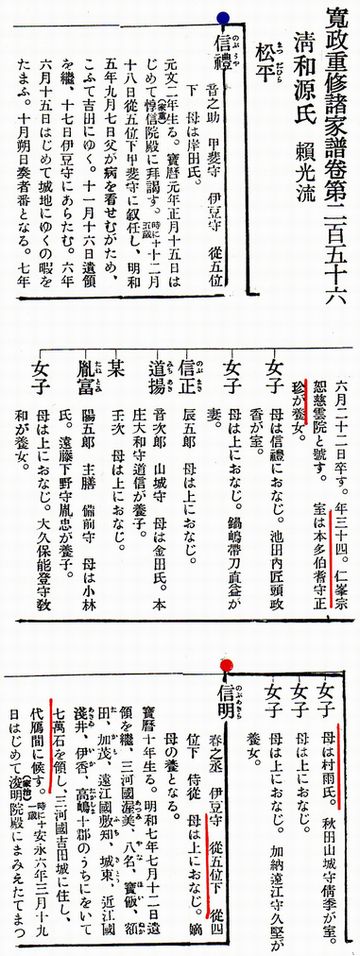 寛政重修諸家譜卷第二百五十六
淸和源氏 賴光流
松平
まつだひら
信禮
のぶうや
音之助 甲斐守 伊豆守 從五位
下 母は岸田氏。
元文二年生る。寶曆元年正月十五日は
じめて惇信院殿に拜謁す。時に十五歲 十二月
(家重)
十八日從五位下甲斐守に叙任し、明和
五年九月七日父が病を看せむがため、
こふて吉田にゆく。十一月十六日遺領
を繼、十七日伊豆守にあらたむ。六年
六月十五日はじめて城地にゆくの暇を
たまふ。十月朔日奏者番となる。七年
六月二十二日卒す。年三十四。仁峯宗
恕慈雲院と號す。 室は本多伯耆守正
珍が養女。
女子
母は信禮におなじ。池田內匠頭政
香が室。
女子
母は上におなじ。鍋嶋帶刀直益が
妻。
信正
のぶまさ
辰五郎 母は上におなじ。
道揚
みちあき
音次郎 山城守 母は金田氏。本
庄大和守道信が養子。
某
壬次 母は上におなじ。
胤富
たねとみ
陽五郎 主膳 備前守 母は小林
氏。遠藤下野守胤忠が養子。
女子
母は上におなじ。大久保能登守敎
和が養女。
女子
母は村雨氏。秋田山城守倩季が室。
女子
母は上におなじ。
女子
母は上におなじ。加納遠江守久堅が
養女。
信明
のぶあきら
春之丞 伊豆守 從五位下 從四
位下 侍從 母は上におなじ。嫡
母の養となる。
寶曆十年生る。明和七年七月十二日遺
領を繼、三河國渥美、八名、寶飯、額
田、加茂、遠江國敷知、城東、近江國
淺井、伊香、高嶋十郡のうちにをいて
七萬石を領し、三河國吉田城に住し、
代々鴈間に候す。時に十一歲 安永六年三月十九
日はじめて浚明院殿にまみえたてまつ
(家治)